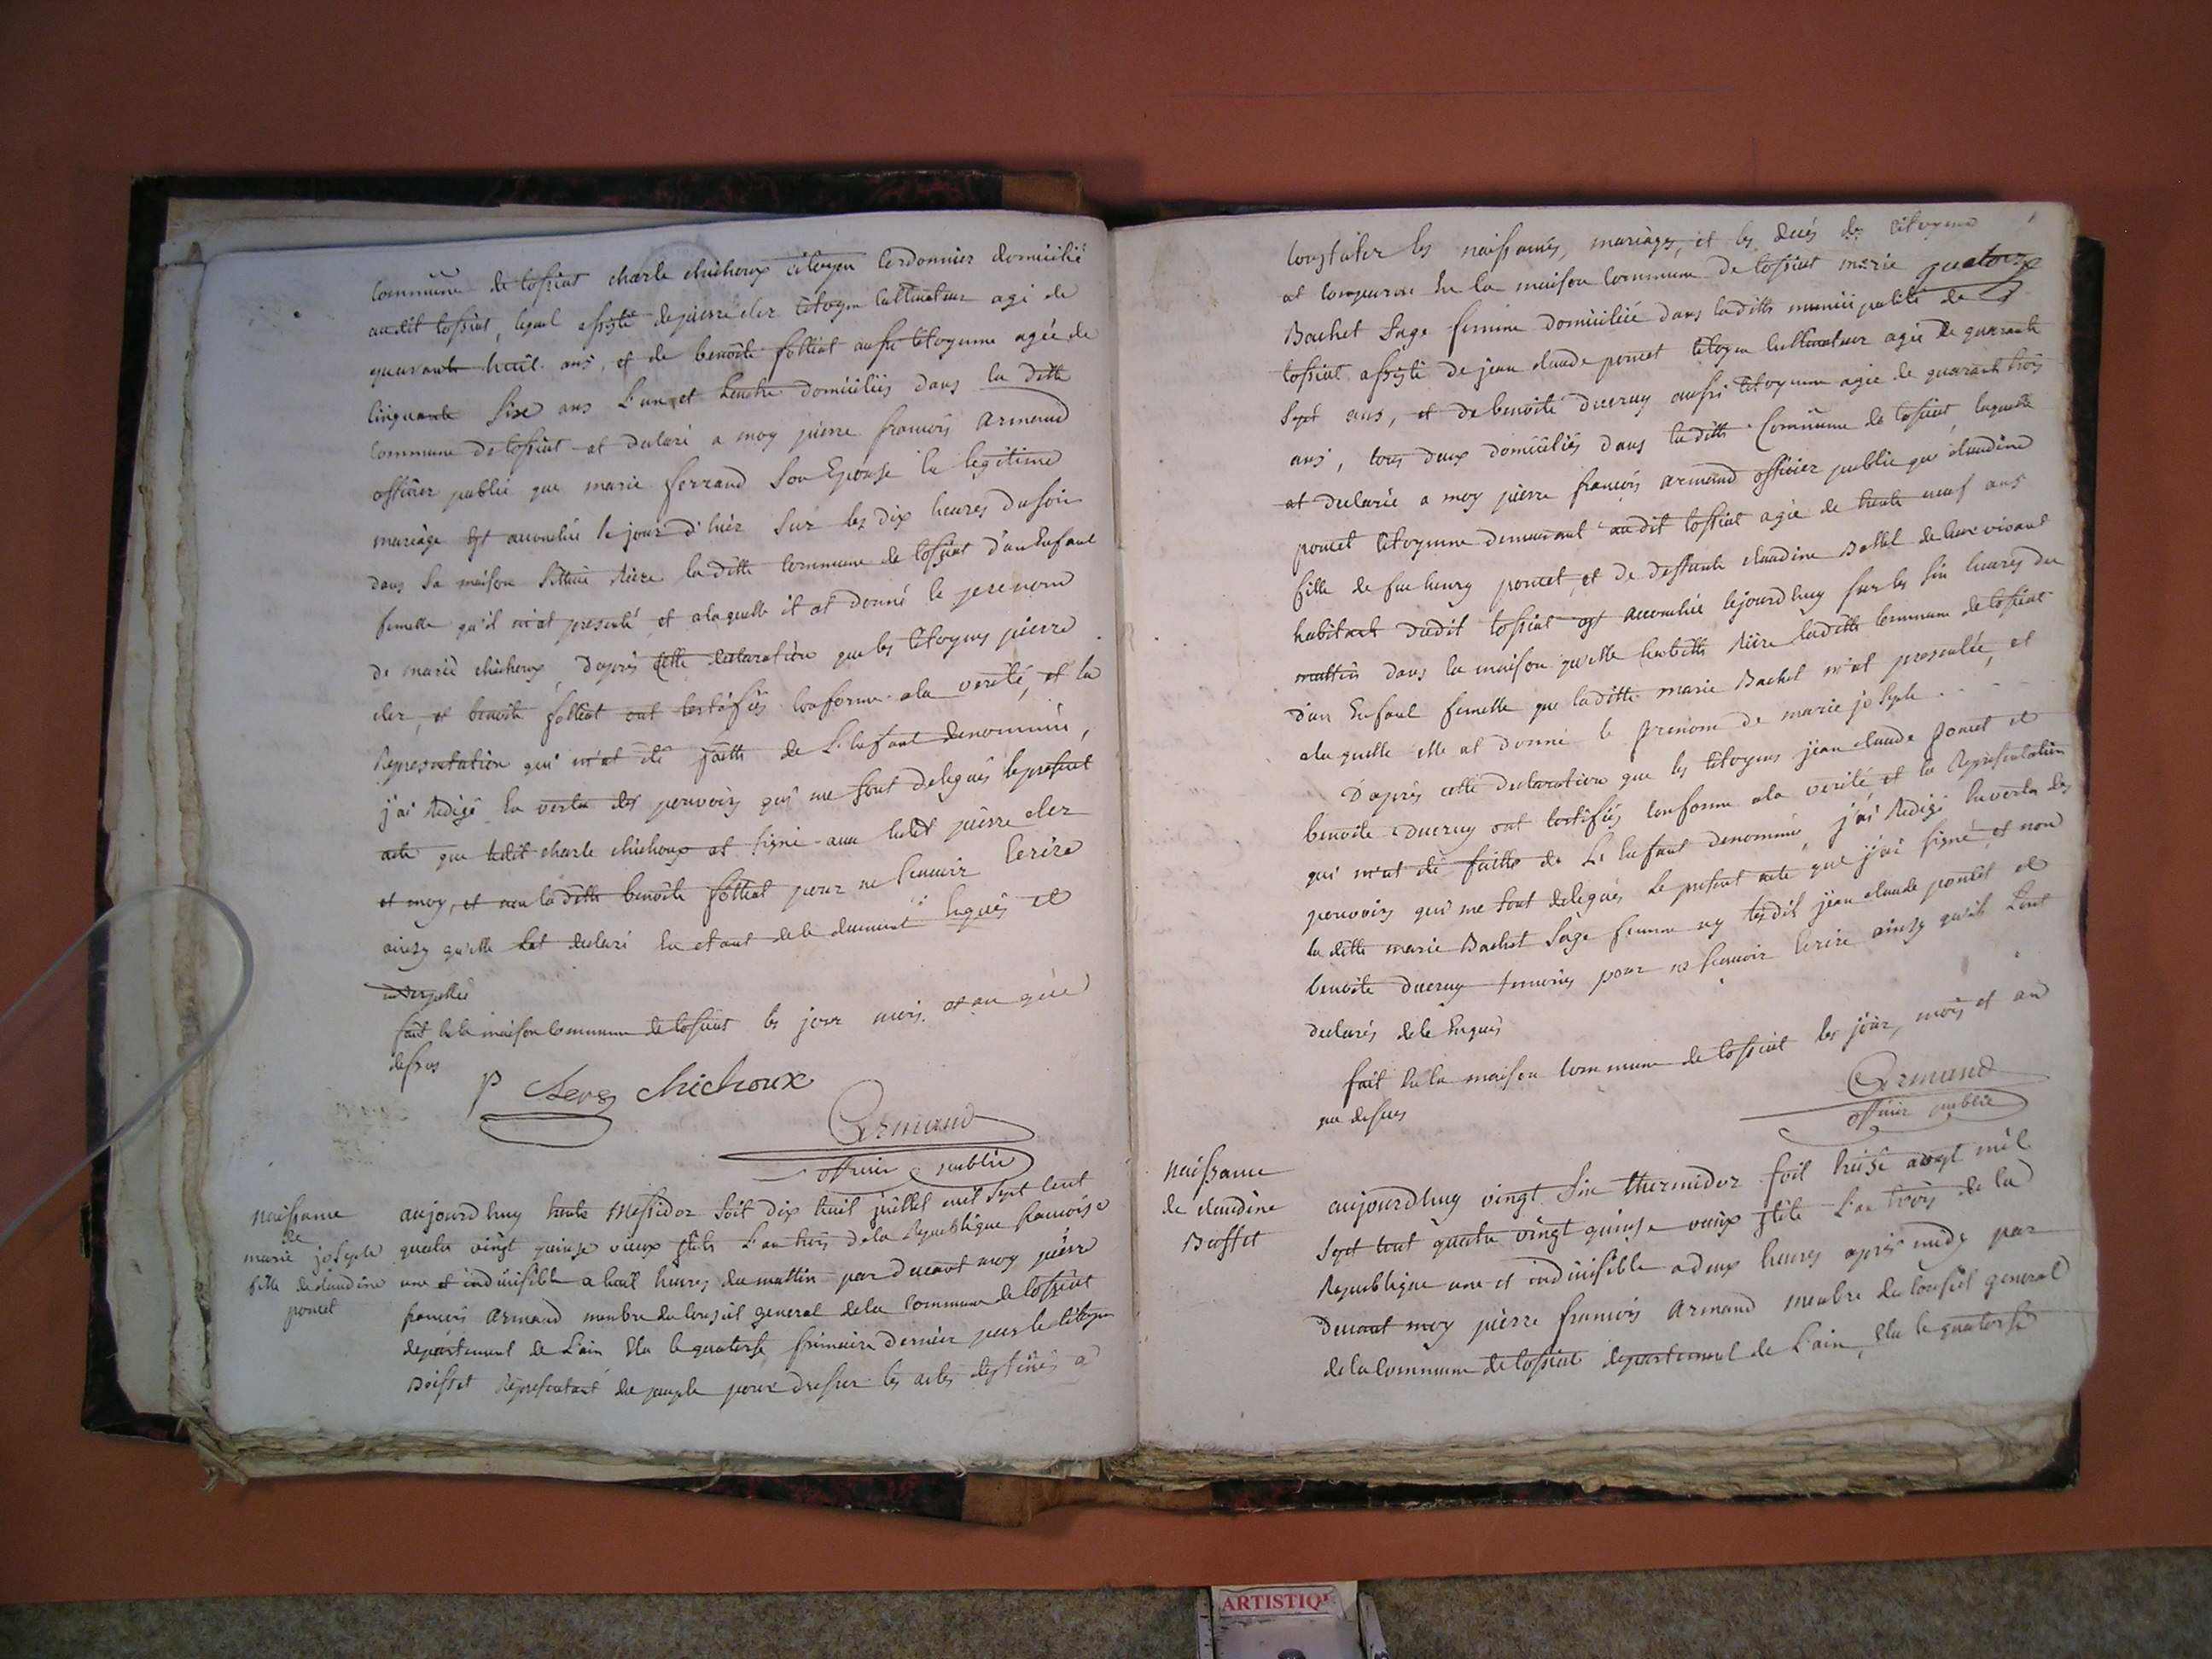 commune de tossiat charle chichoux citoyen cordonnier domicilié
audit tossiat, lequel assisté de pierre cler citoyen cultivateur agé de
quarante huit ans, et de benoite folliat aussi citoyenne agée de
cinquante six ans l'un et l'autre domiciliés dans la ditte
commune de tossiat at declaré a moy pierre francois armand
officier public que marie ferrand son epouse en legitime
mariage est accouchée le jour d'hier sur les dix heures du soir
dans sa maison sittuée rière laditte commune de tossiat d'un enfant
femelle qu'il m'at presenté et alaquelle il at donné le prenom
de marie chichoux, d'apres cette declaration que les citoyens pierre
cler, et benoite folliat ont certifiés conforme ala verité, et la
representation qui m'at été faitte de l'enfant denommé,
j'ai redigé en vertu des pouvoirs qui me sont delegués le present
acte que ledit charle chichoux at signé avec ledit pierre cler
et moy, et non laditte benoite folliat pour ne scavoir ecrire
ainsy qu'elle l'at declaré en etant de le duement enquis et
interpellée
fait en la maison commune de tossiat les jour mois et an que
dessus
P clerg chichoux
Armand
officier public
naissance
de
marie joseple
fille de claudine
poncet
aujourdhuy trente messidor soit dix huit juillet mil sept cent
quatre vingt quinze vieux stile l'an trois de la republique francoise
une et indivisible a huit heures du mattin par devant moy pierre
francois armand membre du conseil general de la commune de tossiat
departement de l'ain elu le quatorse frimaire dernier par le citoyen
Boisset representant du peuple pour dresser les actes destinés a
constater les naissances, mariages, et les decés des citoyens
at comparue en la maison commune de tossiat marie quatorze
Bachet sage femme domiciliée dans laditte municipalité de
tossiat assisté de jean claude poncet citoyen cultivateur agé de quarante
sept ans, et de benoite ducruy aussi citoyenne agée de quarante trois
ans, tous deux domiciliés dans laditte commune de tossiat, laquelle
at declarée a moy pierre francois armand officier public que claudine
poncet citoyenne demeurant audit tossiat agée de trente neuf ans
fille de feu henry poncet, et de deffunte claudine Bottel de leur vivant
habitants dudit tossiat est accouchée lejourdhuy sur les six heures du
mattin dans la maison qu'elle habitte rière laditte commune de tossiat
d'un enfant femelle que laditte marie Bachet m'at presentée, et
alaquelle elle at donné le prenom de marie joseple
D'apres cette declaration que les citoyens jean claude poncet et
benoite ducruy ont certifiés conforme ala verité et la representation
qui m'at été faitte de l'enfant denommé, j'ai redigé en vertu des
pouvoirs qui me sont delegués le present acte que j'ai signé, et non
la ditte marie Bachet sage femme ny lesdits jean claude poncet et
benoite ducruy temoins pour ne scavoir ecrire ainsy qu'ils l'ont
declarés de le enquis
fait en la maison commune de tossiat les jour, mois et an
que dessus
Armand
officier public
naissance
de claudine
Buffet
aujourdhuy vingt six thermidor soit treise aoust mil
sept cent quatre vingt quinse vieux stile l'an trois de la
Republique une et indivisible a deux heures après midy par
devant moy pierre francois armand membre du conseil general
de la commune de tossiat departement de l'ain, elu le quatorse
ARTISTIQ